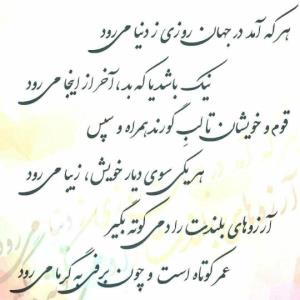 هر که آمد در جهان روزی ز دنیا می رود
نیک باشد یا که بد، آخر از اینجا می رود
قوم و خویشان تا لب گورند همراه و سپس
هر یکی سوی دیار خویش، زیبا می رود
آرزوهای بلندت را دمی کوته بگیر
عمر کوتاه است و چون برفی به گرما می رود